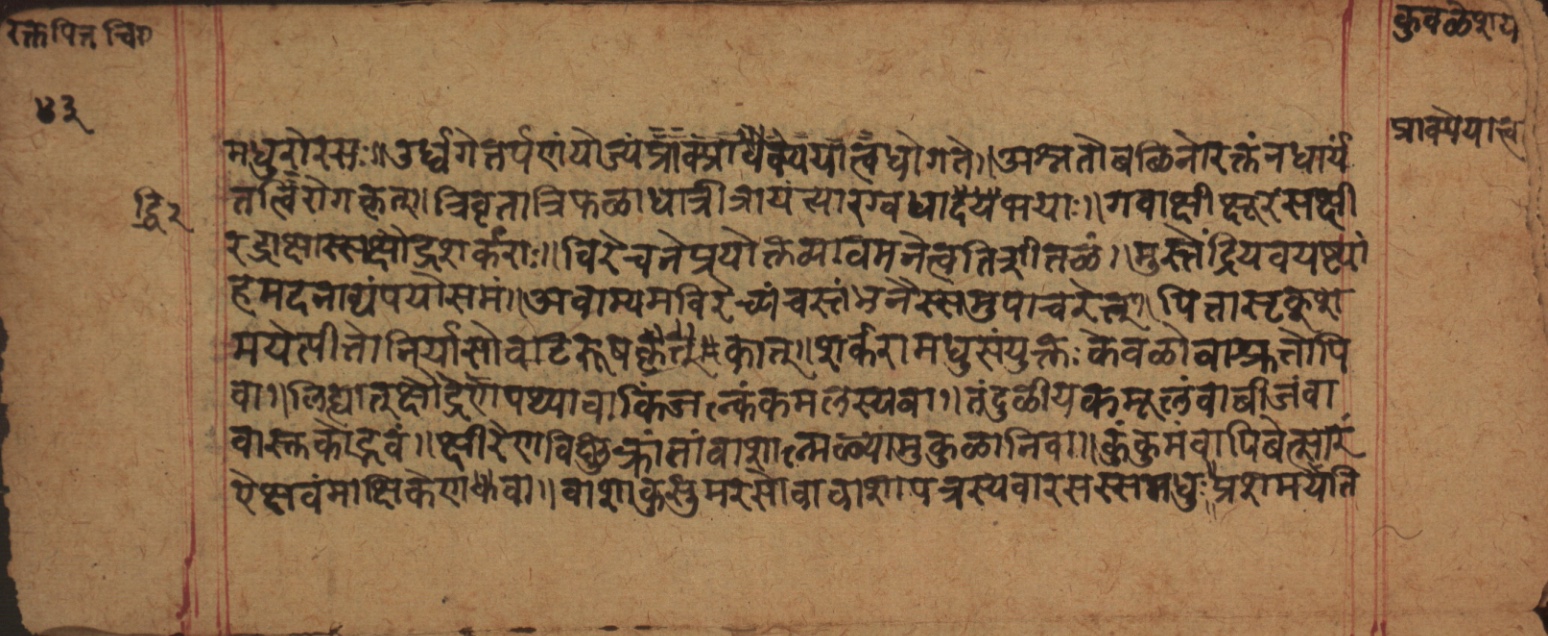 रक्तपित्त चि०
कुवळेशय
४३
प्राक्पेयात्व
मधुरोरसः॥उर्ध्वगेतर्पणंयोज्यंप्राक्पेयात्वधोगते॥अश्नतोबळिनोरक्तंनधार्यं
तत्धिरोगकृत्॥त्रिवृतात्रिफळाधात्रीत्रायंत्यारग्वधादयेभयाः॥गवाक्षीक्षूरसक्षी
द्वि२
रद्राक्षास्सक्षौद्रशर्कराः॥विरेचनेप्रयोक्तव्यावमनेत्वतिशीतळं॥मुस्तेंद्रियवयष्ट्या
हमदनाढ्यंपयोसमं॥अवाम्यमविरेच्यंचस्तंभनैस्समुपाचरेत्॥पित्तासृक्श
मयेत्पीतोनिर्यासोवाटरूषकात्॥शर्करामधुसंयुक्तःकेवळोवाशृतोपि
वा॥लिह्यात्क्षौद्रेणपथ्यावाकिंजल्कंकमलस्यवा॥तंदुळीयकमूलंवाबीजंवा
वास्तकोद्रवं॥क्षीरेणविष्णुक्रांतांवाशाल्मळ्यामुकुळानिवा॥कुंकुमंवापिबेत्सारं
ऐक्षवंमाक्षिकेणवा॥वाशाकुसुमरसोवावाशापत्रस्यवारसस्समधुःप्रशमयति